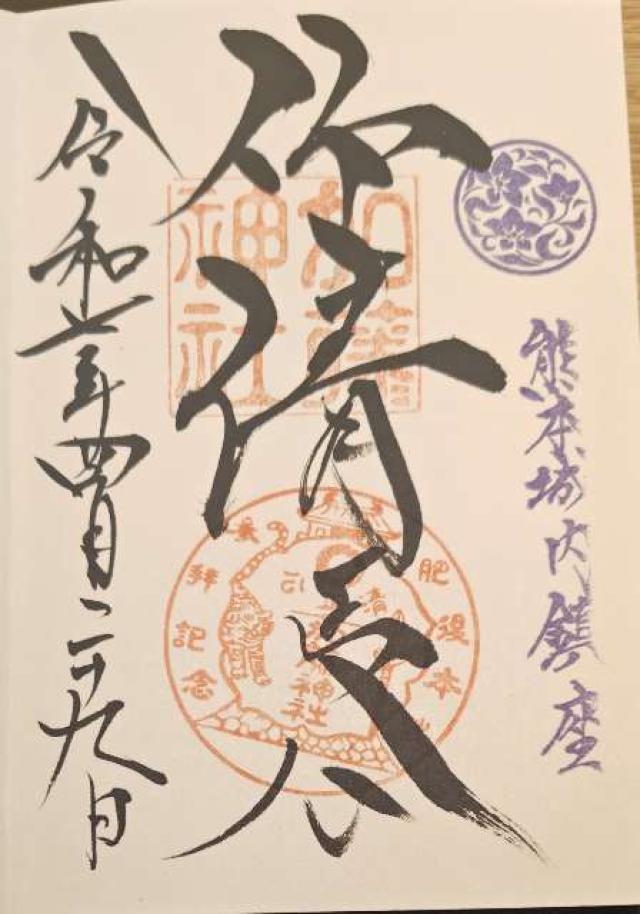 熊本城内鎮座
仰清正公
令和七年四月二十九日
加藤
神社
肥後本
拜記念
神社